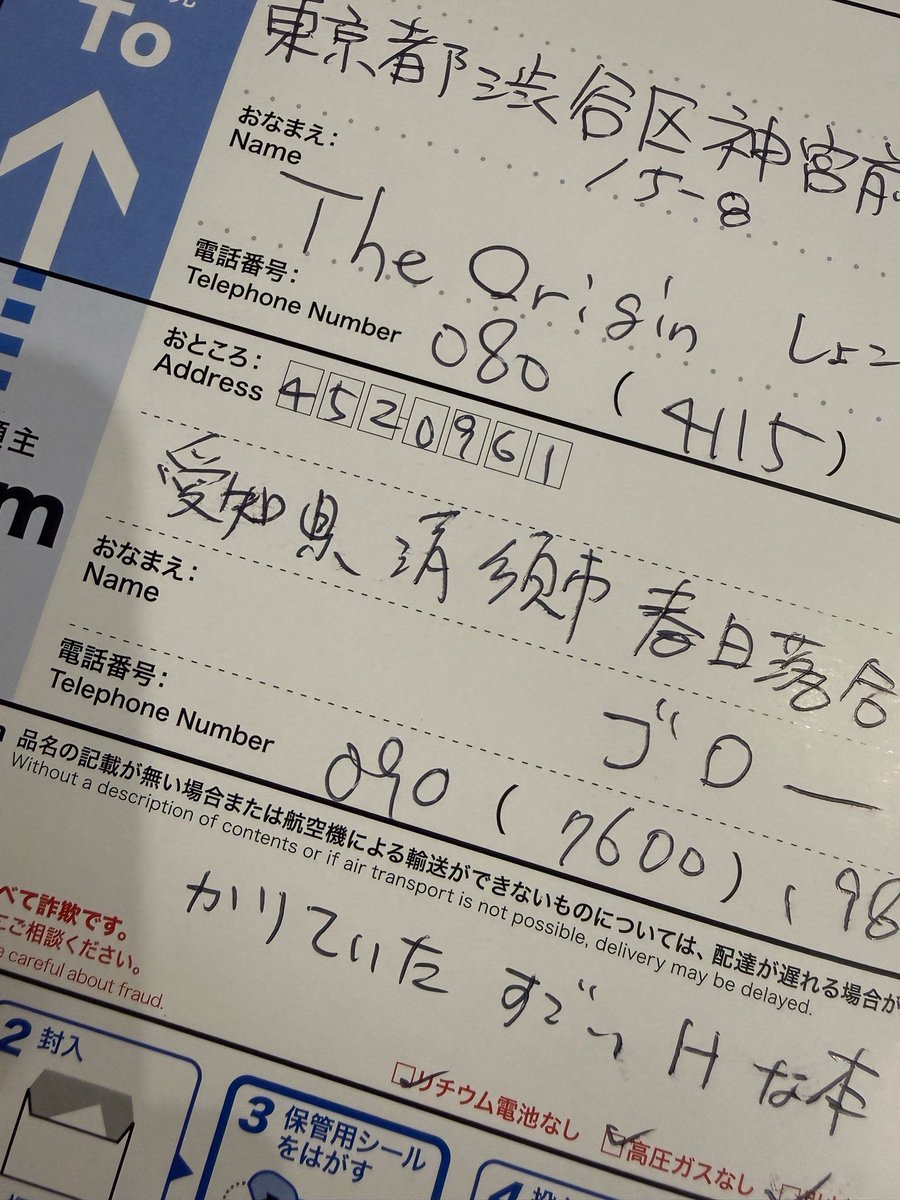 To
東京都渋谷区神宮前
15-8
おなまえ:
Name
The Origin しょこ
電話番号:
Telephone Number
080 (4115)
おところ:
Address
4520961
愛知県清須市春日落合
おなまえ:
Name
ゴロー
電話番号:
Telephone Number
090 (7600) 198
品名の記載が無い場合または航空機による輸送ができないものについては、配達が遅れる場合が
Without a description of contents or if air transport is not possible, delivery may be delayed.
かりていた すごいHな本
べて詐欺です。
ご相談ください。
careful about fraud.
リチウム電池なし
高圧ガスなし
2 封入
3 保管用シール
をはがす
4